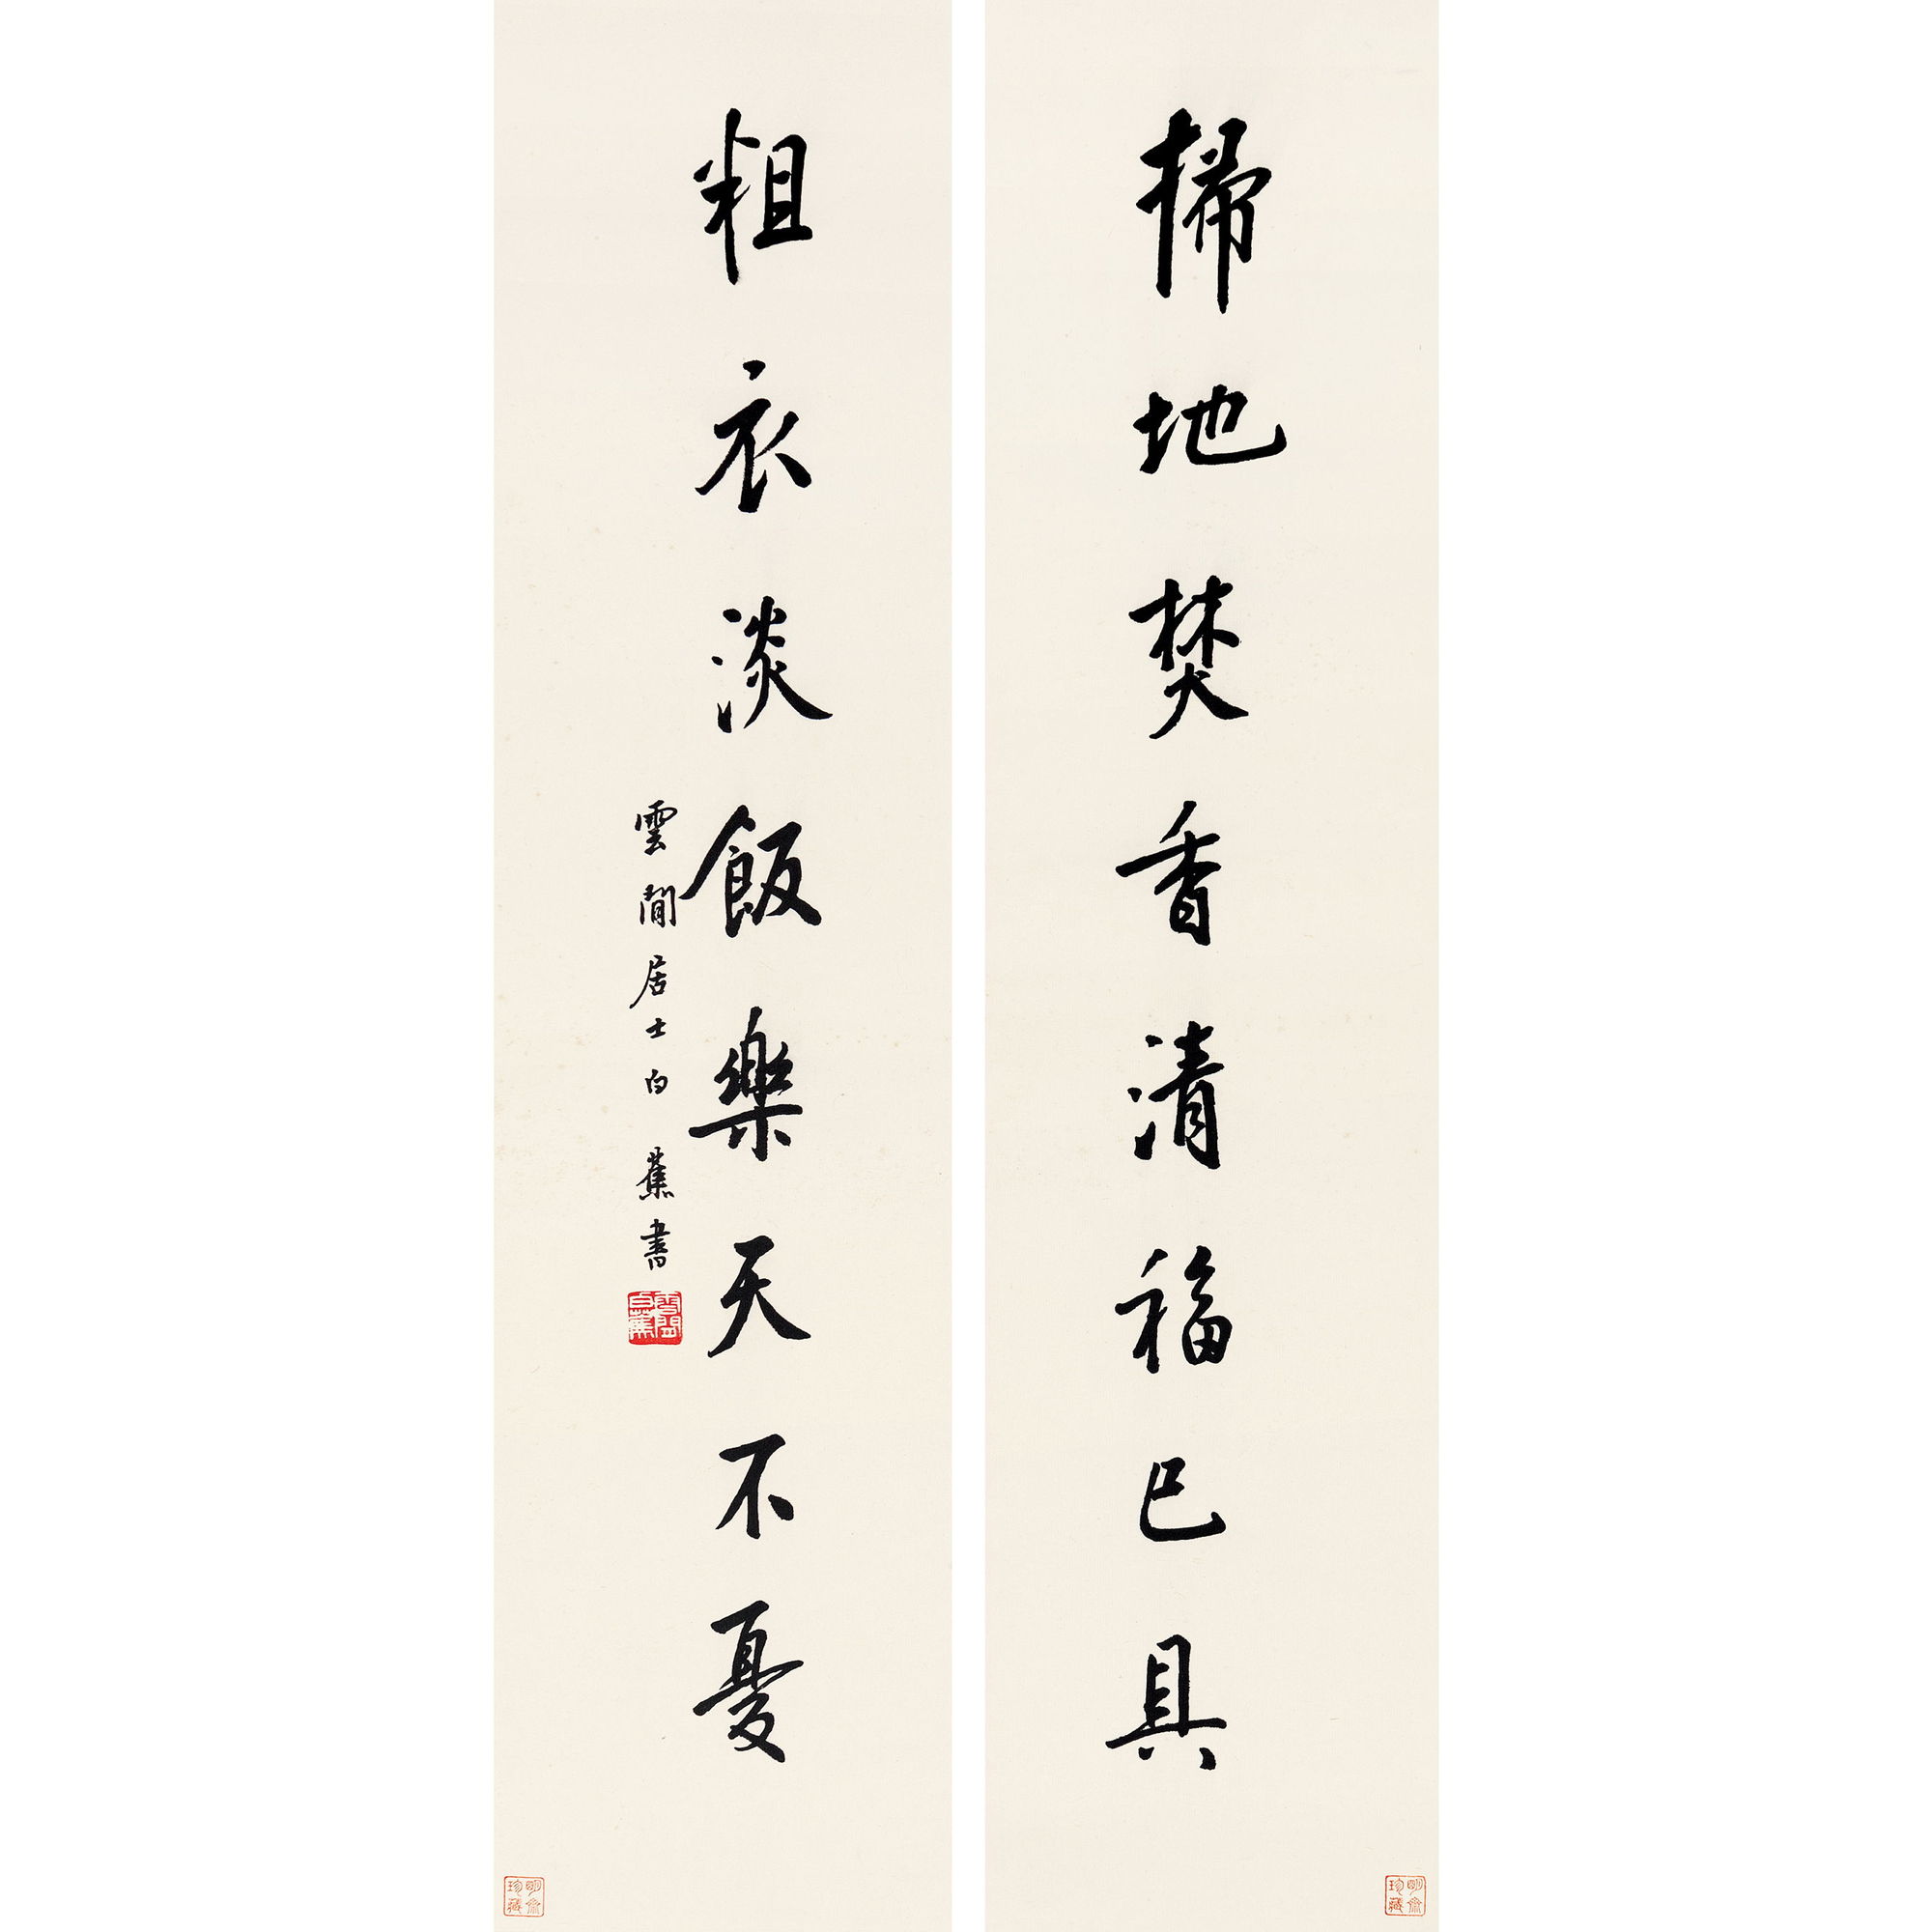 掃地焚香清福已具
粗衣淡飯樂天不憂
雲間居士白蕉書
雲間白蕉
明齋珍藏
明齋珍藏